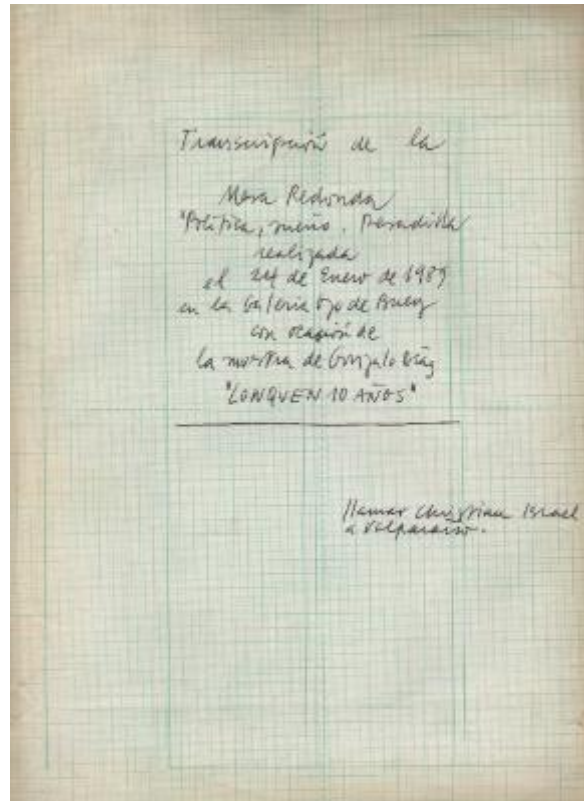 Transcripción de la
Mesa Redonda
"Política, sueño. Pesadilla
realizada
el 24 de Enero de 1989
en la Galería Ojo de Buey
con ocasión de
la muestra de Gonzalo Díaz
"LONQUEN 10 AÑOS"
llamar Christian Israel
a Valparaíso.